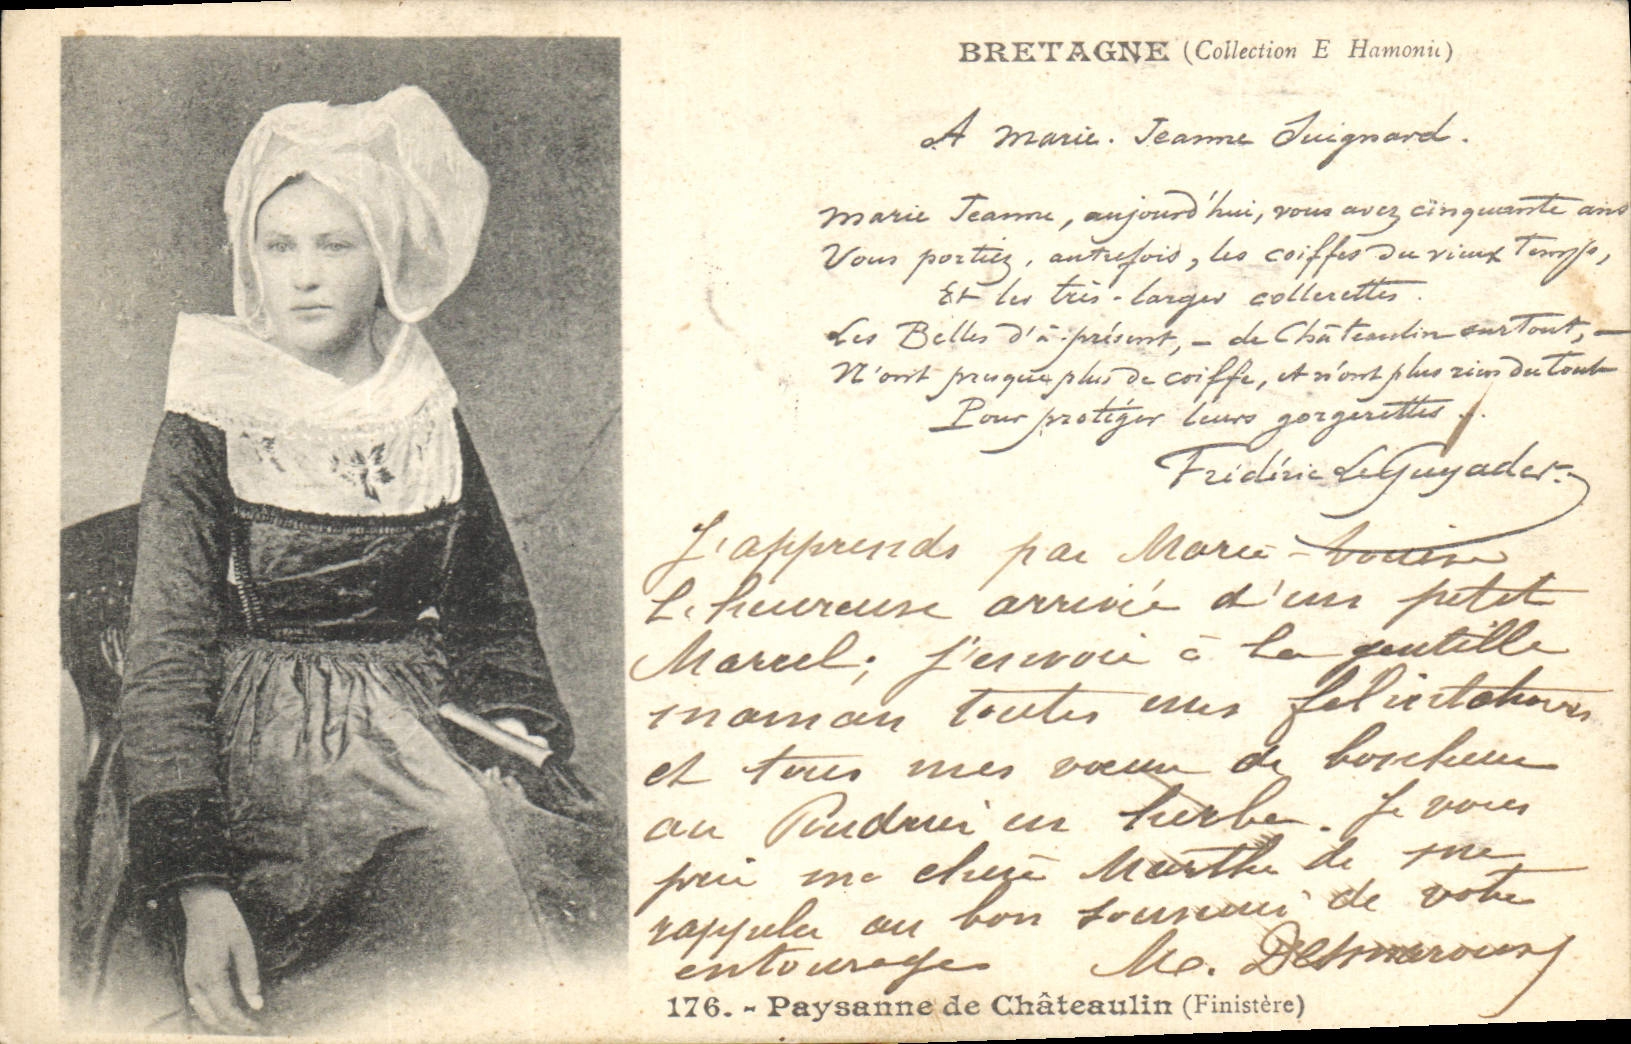 BRETAGNE (Collection E Hamonic)
A Marie-Jeanne Guignard.
Marie Jeanne, aujourd'hui, vous avez cinquante ans
Vous portiez, autrefois, les coiffes du vieux temps,
Et les très-larges collerettes.
Les Belles d'à-présent, - de Châteaulin surtout, -
N'ont presque plus de coiffe, et n'ont plus rien du tout
Pour protéger leurs gorgerettes...
Frédéric Le Guyader.
J'apprends par Marie-Louise
L'heureuse arrivée d'un petit
Marcel; j'envoie à la gentille
maman toutes mes félicitations
et tous mes vœux de bonheur
au en herbe. Je vous
prie ma chère Marthe de me
rappeler au bon souvenir de votre
entourage M.
176. - Paysanne de Châteaulin (Finistère)